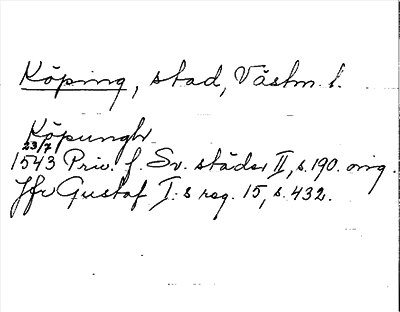 Köping, stad, Västm. l.
Köpungh
23/7
1543 Priv. f. Sv. städer II, s. 190. orig.
Jfr Gustaf I:s reg. 15, s. 432.